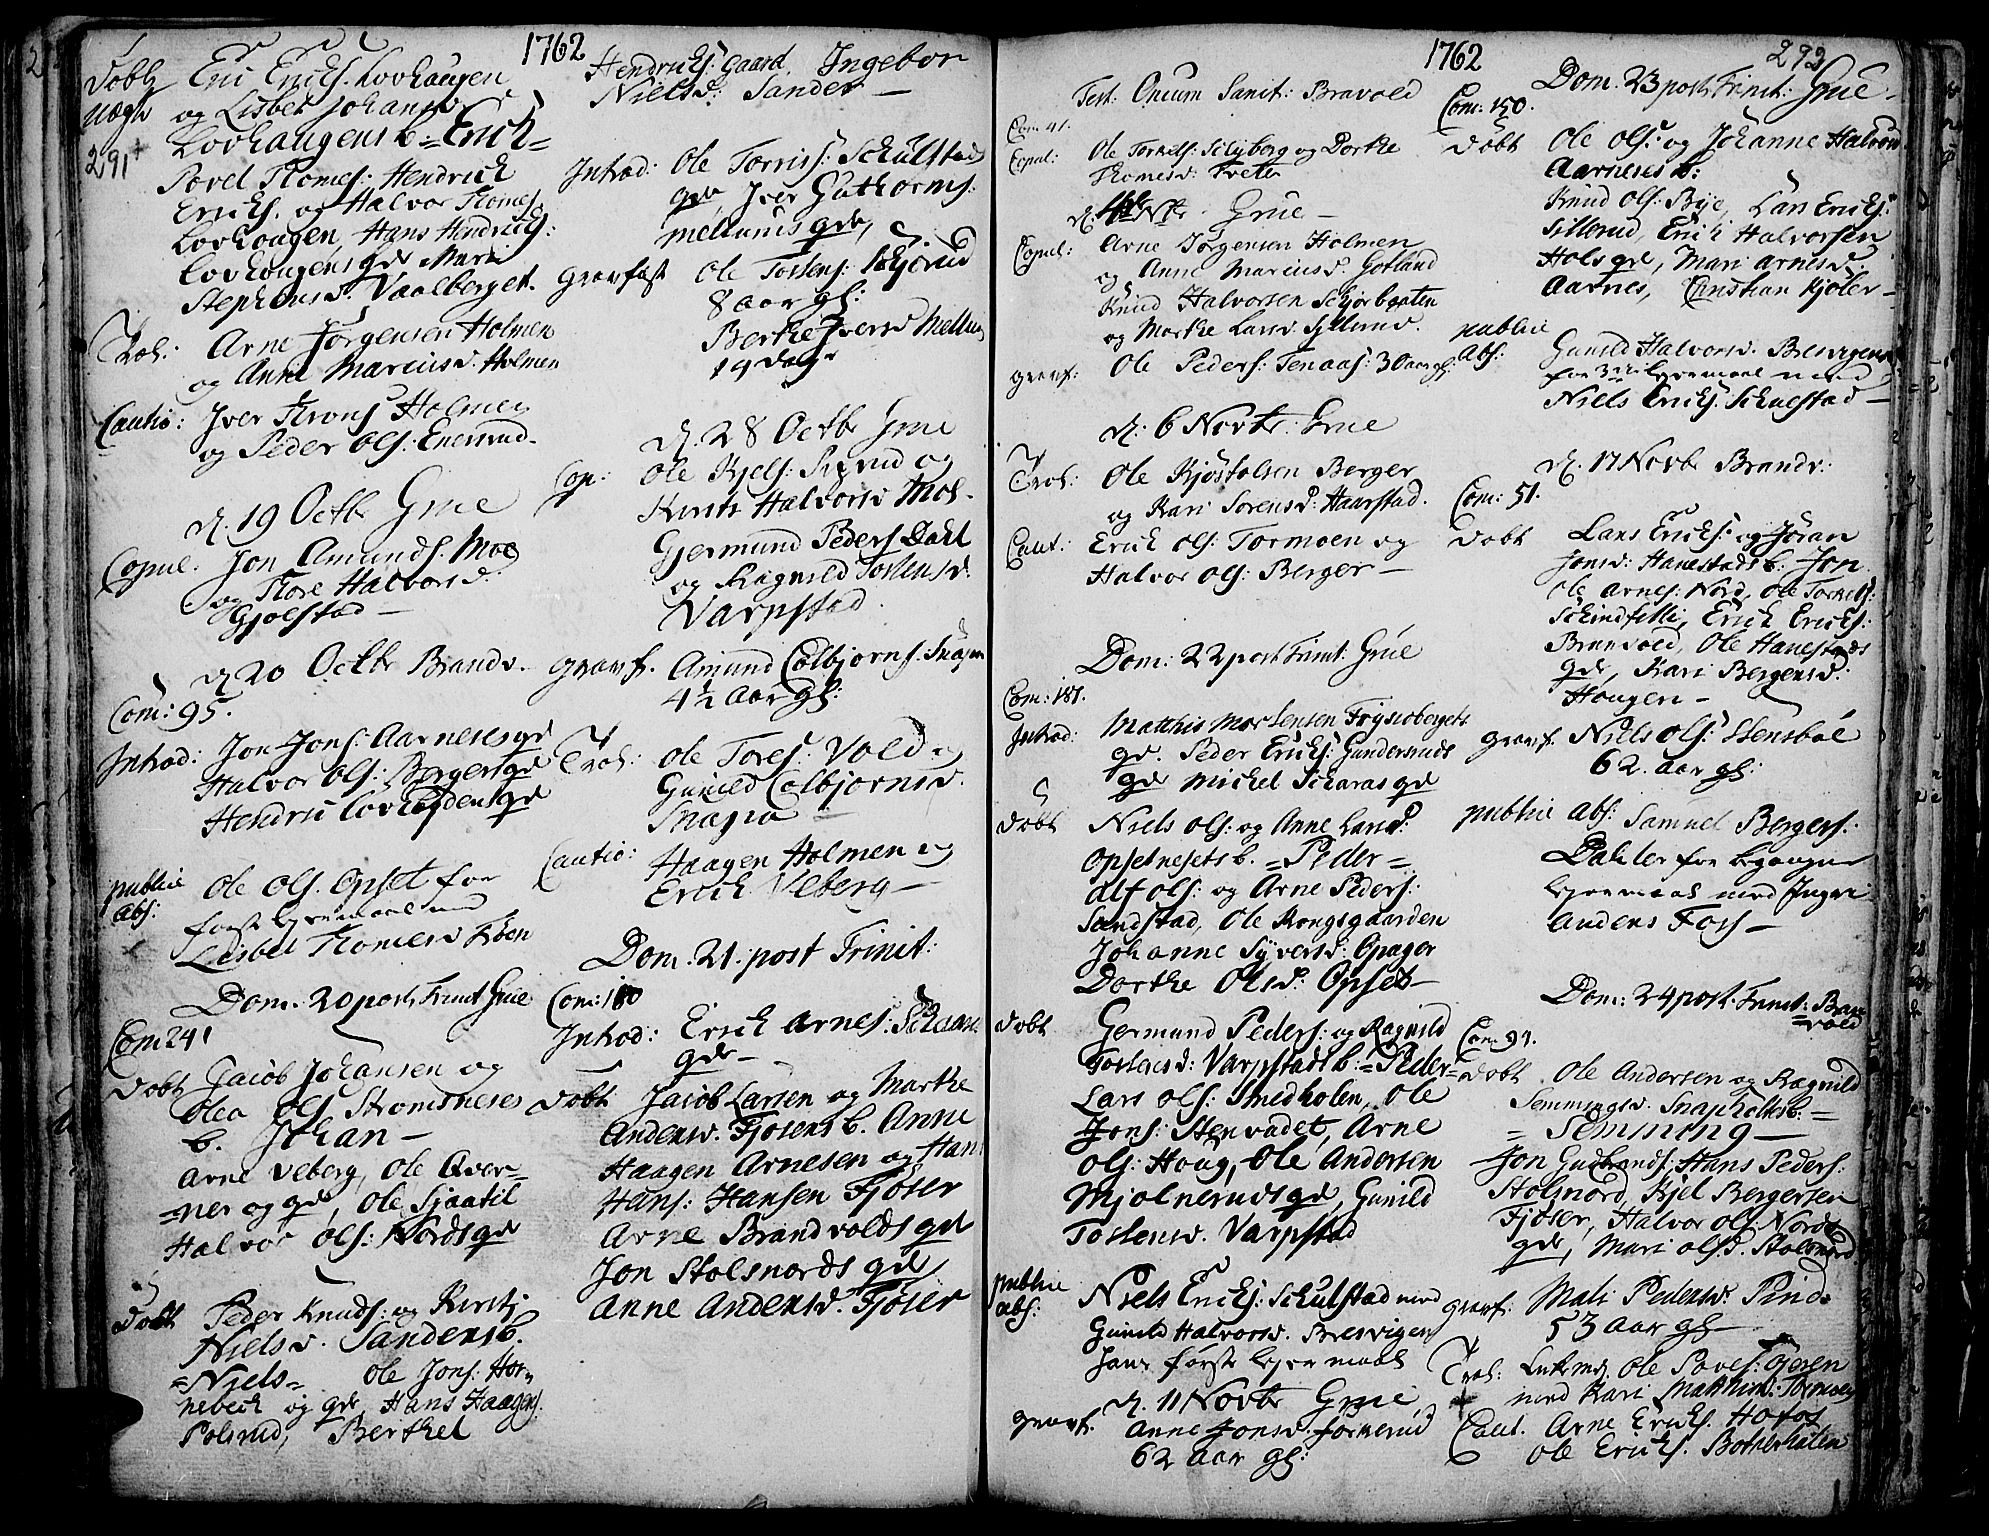 1762
Døbt Eric Ericks: Lovhaugen
uægte og Lisbet Johansd:
Lovhaugens b: =Erich=
291
Povel Thomes: Hendrick
Ericks. og Halvor Thomes:
Lovhougen, Hans Hendrichs:
Lovhougens qde Mari
Stephensd: Vaalberget.
Trol: Arne Jørgensen Holmen
og Anne Mariusd. Holmen
Cautio: Iver Holmen
og Peder Ols: Enersrud.
d. 19 Octbr Grue
Copul. Jon Amunds: Moe
og Thore Halvorsd:
Gjølstad —
d 20 Octbr Brandv.
Com: 95.
Introd: Jon Jons: Aarneses qde
Halvor Ols: Berger qde
Hendric Løvhøyden qde
public abs: Ole Ols. Opset for
første lejermaal med
Lisbet Thomesd. Tjøen
Dom. 20 post Trinit Grue
Com 241
Døbt Jacob Johansen og
Olea Ols. Strømsneses
b. Johan —
Arne Veberg, Ole Qver=
=ner og qde, Ole Sjaatil
Halvor Ols: Nords qde
Døbt Peder Knuds: og Kirsti
Nielsd. Sandens b.
=Niels= Ole Jons: Hor=
nebeck og qde, Hans Haagens:
Polsrud, Berthel
Hendricks: gaard, Ingebor
Nielsd: Sander —
Introd: Ole Torriss: Schulstad
qde, Iver Guthorms:
Mellums qde,
Gravfæst Ole Tostens: Schjørud
8 aar gl:
Berthe Iversd Mellum
19 dage
d. 28 Octbr Grue
Cop: Ole Kjels: og
Kirsti Halvorsd Moe.
Gjermund Peders Dahl
og Ragnild Tostensd.
Varpstad.
Gravf. Amund Colbjørns. Snapa
4½ Aar gl:
Trol: Ole Tores: Vold og
Gunild Colbjørnsd.
Snapa —
Cautio: Haagen Holmen og
Erich Veberg —
Dom. 21. post Trinit:
Com: 180
Introd: Erick Arnes:
qde —
Døbt Jacob Larsen og Marthe
Andersd. Fjøsers b. Anne
Haagen Arnesen og Hans
Hans: Hansen Fjøser
Arne Brandvolds qde
Jon Stolsnords qde
Anne Andersd. Fjøser
1762
293
Fest: Omium Sanct: Bravold
Com 41.
Copul: Ole Torkels: Schyberg og Dorthe
Thomesd: Træten
d. 4de Nov. Grue —
Copul: Arne Jørgensen Holmen
og Anne Mariusd. Gotland
Knud Halvorsen Schjørbaaten
og Marthe Larsd Sillerud.
gravf: Ole Peders: Tenaas: 30 aar gl:
d: 6 Novbr: Grue
Trol: Ole Kjøstolsen Berger
og Kari Sørensd: Haarstad.
Caut: Erich Ols: Tormoen og
Halvor Ols: Berger —
Dom: 22 post Trinit: Grue
Com: 181.
Introd: Matthis Mortensen Frysiobergets
qde. Peder Ericks: Gundersruds
qde Michel Scharas qde
Døbt Niels Ols: og Anne Larsd:
Opsetnesets b. =Peder=
Alf Ols: og Arne Peders:
Sandstad, Ole Kongsgaarden
Johanne Syversd: Opager
Dorthe Olsd: Opset —
Døbt Germund Peders: og Ragnild
Tostensd: Varpstads b: =Peder=
Lars Ols: Smedholen, Ole
Jons: Stenvadet, Arne
Ols: Houg, Ole Andersen
Mjølneruds qde, Gunild
Tostensd. Varpstad
public abs: Niels Ericks: Schulstad med
Gunild Halvorsd. Bresvigen
hans første lejermaal
d. 11 Novbr Grue
gravf. Anne Jonsd. Tørkerud
62 Aar gl:
Dom. 23 post Trinit: Grue —
Com: 150.
Døbt Ole Ols: og Johanne Halvorsd:
Aarneses b:
Knud Ols: Bye, Lars Ericks:
Sillerud, Erich Halvorsen
Hols qde, Mari Arnesd
Aarnes, Christian Kjøler —
public abs: Gunild Halvorsd. Bresvigen
for 3die lejermaal med
Niels Ericks. Schulstad —
d. 17 Novbr Brandv:
Com: 51.
Døbt Lars Ericks: og Jøran
Jonsd: Hanestads b. Jon
Ole Arnes: Nord, Ole Torkels:
Schindfilli, Erick Ericks:
Branvold, Ole Hanestads
qde, Kari Bergersd:
Hougen —
gravf. Niels Ols: Stensbøl
62. aar gl:
public abs: Samuel Bergers:
Dahler for begangne
lejermaal med Ingeri
Anders Fors —
Dom: 24 post. Trinit: Bran
=vold
Com 94.
Døbt Ole Andersen og Ragnild
Semmingsd. Snapholts b. =
= Semming —
Jon Gudbrands: Hans Peders:
Stolsnord, Kjel Bergersen
Fjøser, Halvor Ols: Nords
qde, Mari Olsd. Stolsnord
gravf: Mali Pedersd. Rind.
53 aar gl —
Trol: Ole Poves:
med Kari Matthisd: Tormoen
Caut. Arne Ericks. Hofos
Ole Ericks. Botnerhølen